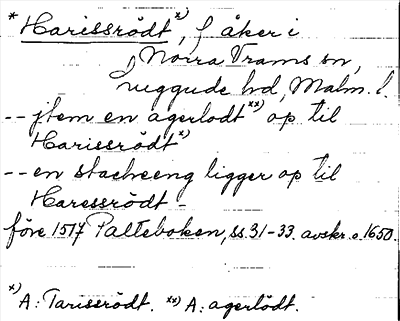 * Harissrödt *), f åker i
Norra Vrams sn,
Luggude hd, Malm. l.
-- jtem en agerlodt **) op til
Harissrödt *)
-- en stacheeng ligger op til
Haressrödt -
före 1517 Palteboken, ss. 31-33. avskr. o. 1650.
*) A: Tarissrödt. **) A: agerlödt.